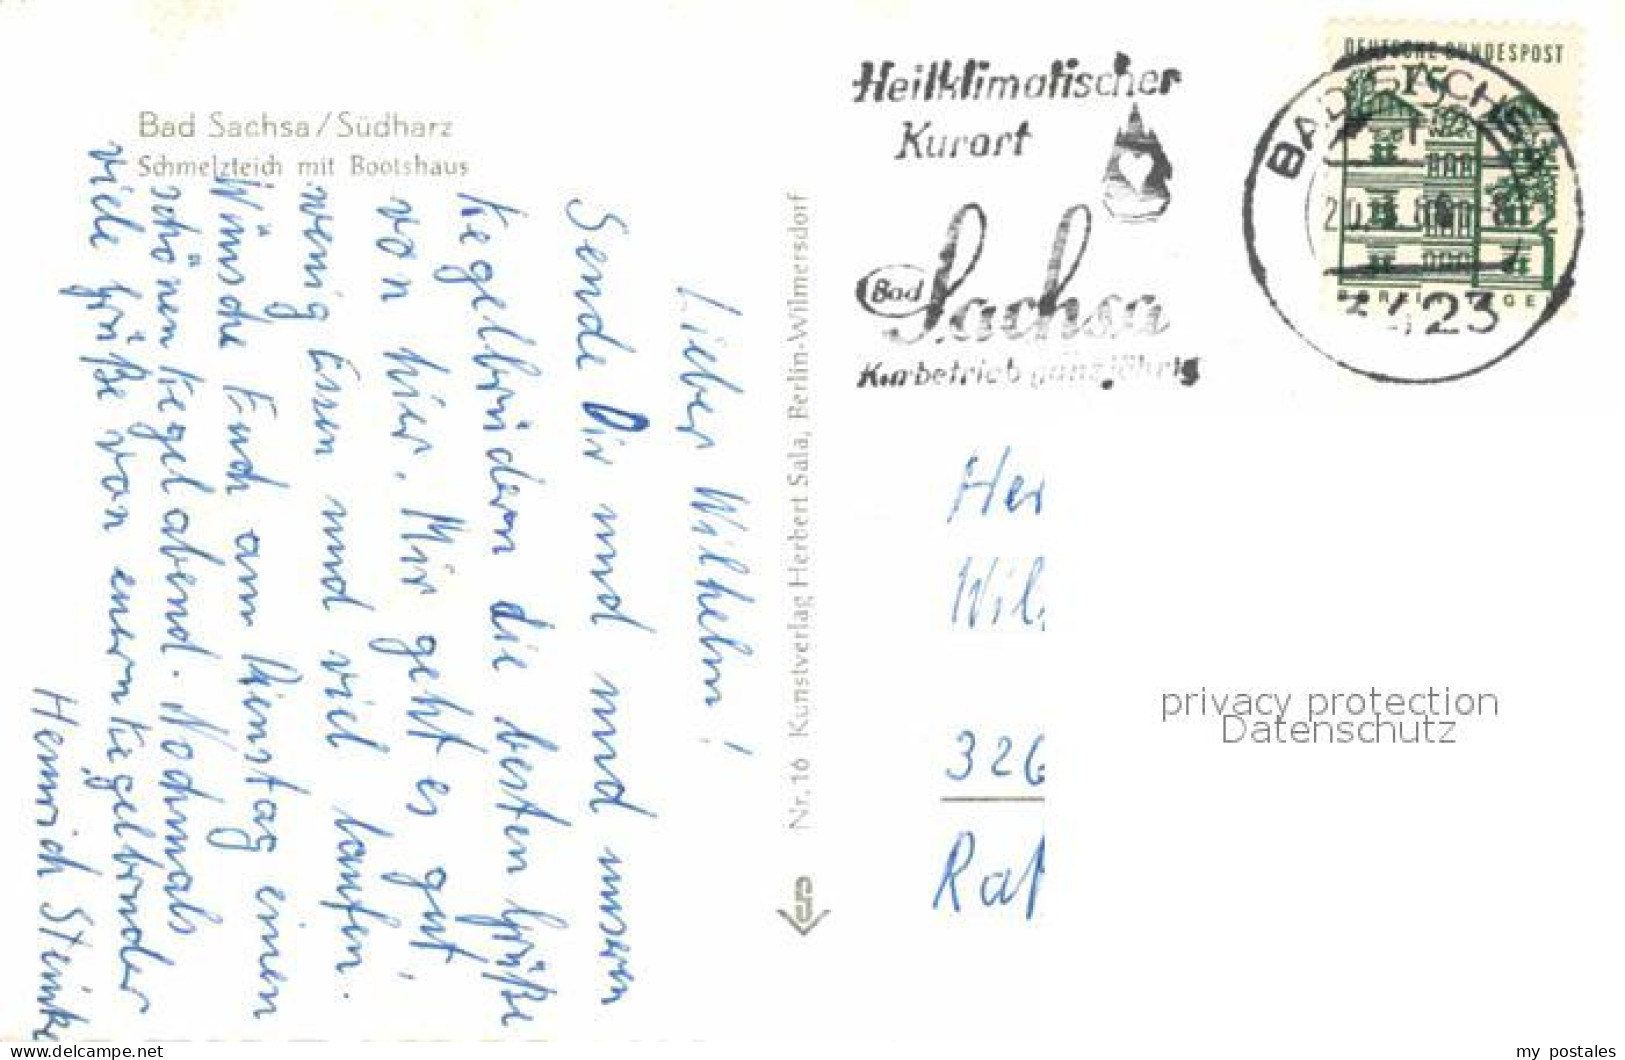 Bad Sachsa/Südharz
Schmelzteich mit Bootshaus
Lieber Wilhelm!
Sende Dir und und unseren
Kegelbrüdern die besten Grüße
von hier. Mir geht es gut,
wenig Essen und viel laufen.
Wünsche Euch am Dienstag einen
schönen Kegelabend. Nochmals
viele Grüße von eurem Kegelbruder
Heinrich Steinke
Nr. 16 Kunstverlag Herbert Sala, Berlin-Wilmersdorf
Heilklimatischer
Kurort
Bad Sachsa
Kurbetrieb ganzjährig
DEUTSCHE BUNDESPOST
15
BAD SACHSA
3423
Her
Wil
326
Rat
privacy protection
Datenschutz
delcampe.net
my_postales